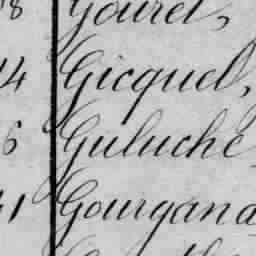 8 Gouret,
14 Gicquel,
6 Guluche
41 Gourgand